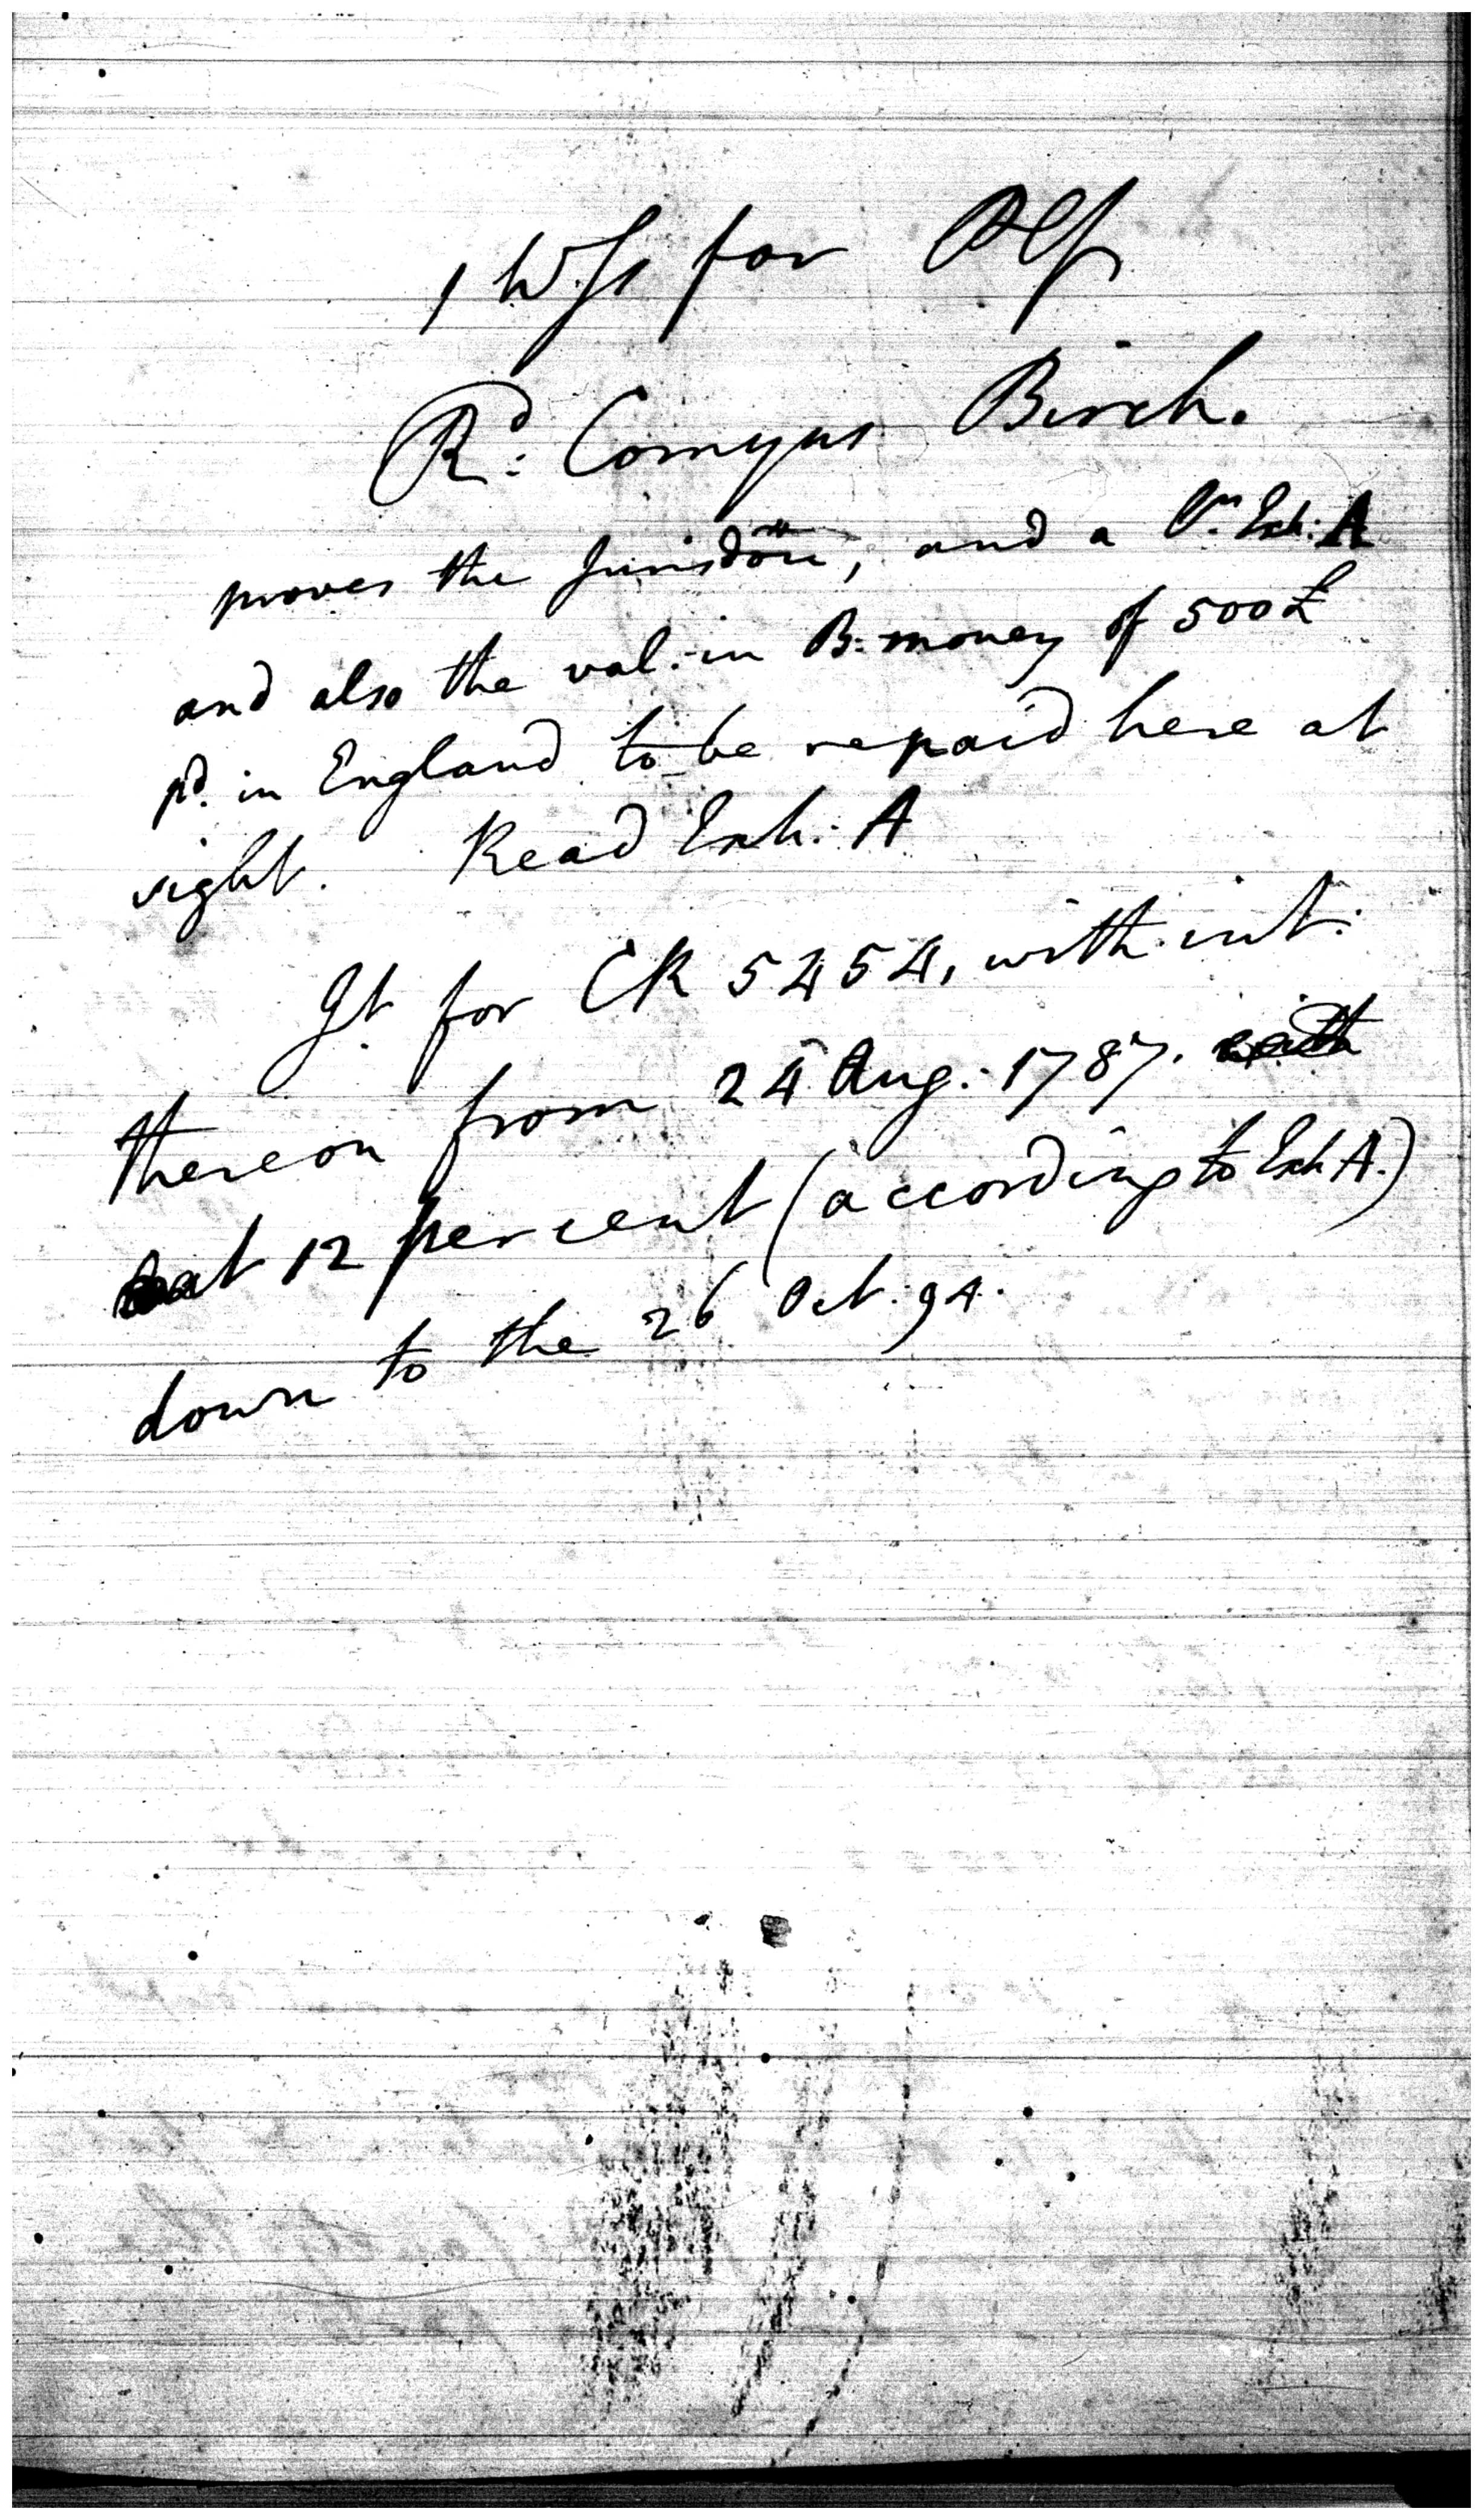 1 Wss for Plf
Rd: Comyns Birch.
proves the Jurisdon, and a Exh: A
and also the val. in B: money of 500£
pd. in England to be repaid here at
sight. Read Exh: A
Jt for CR 5454, with int:
thereon from 24 Aug: 1787. with
at 12 percent (according to Exh A.)
down to the 26 Oct. 94.